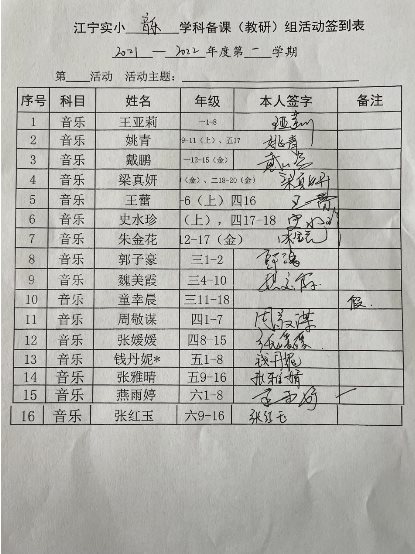 江宁实小 音乐 学科备课（教研）组活动签到表
2021 — 2022 年度第 一 学期
第____活动 活动主题：
序号 科目 姓名 年级 本人签字 备注
1 音乐 王亚莉 一1-8 王亚莉
2 音乐 姚青 9-11（上）、五17 姚青
3 音乐 戴鹏 一12-15（金） 戴鹏
4 音乐 梁真妍 （金）、二18-20（金） 梁真妍
5 音乐 王蕾 -6（上）四16 王蕾
6 音乐 史水珍 （上），四17-18
7 音乐 朱金花 12-17（金）
8 音乐 郭子豪 三1-2
9 音乐 魏美霞 三4-10
10 音乐 童幸晨 三11-18 假.
11 音乐 周敬谋 四1-7 周敬谋
12 音乐 张媛媛 四8-15 张媛媛
13 音乐 钱丹妮* 五1-8 钱丹妮
14 音乐 张雅晴 五9-16 张雅婧
15 音乐 燕雨婷 六1-8
16 音乐 张红玉 六9-16 张红玉